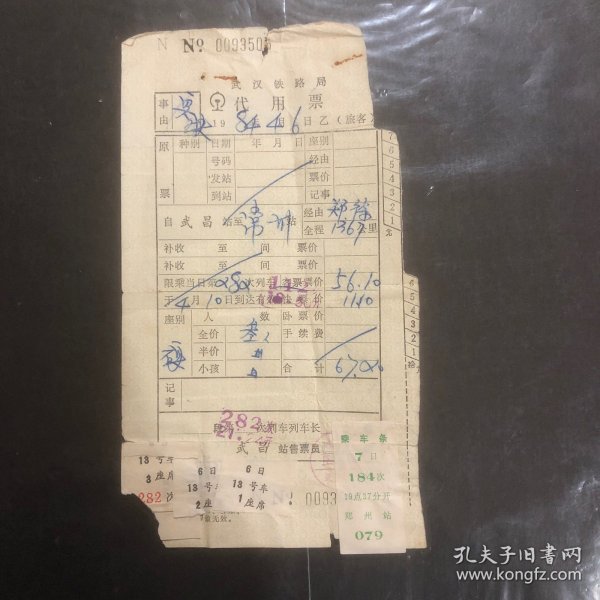 N No 0093505
武汉铁路局
事由
代用票
1984年4月6日乙(旅客)
原票
种别 日期 年 月 日 座别
号码 经由
发站 票价
到站 记事
自武昌站至常州站 经由 郑徐
全程 1367公里
补收 至 间 票价
补收 至 间 票价
限乘当日第 280 次列车 客票票价 56.10
于4月10日到达有效 票价 11.10
座别 人数 卧票价
全价 叁 手续费
半价
小孩 合计
记事
282
次列车列车长
武昌 站售票员
13号车
3座席
282次
6日
13号车
2座
6日
13号车
1座席
No 0093
乘车条
7日
184次
19点37分开
郑州站
079
7
6
5
4
3
2
1
元
6
5
4
3
2
1
拾
孔夫子旧书网
www.kongfz.com